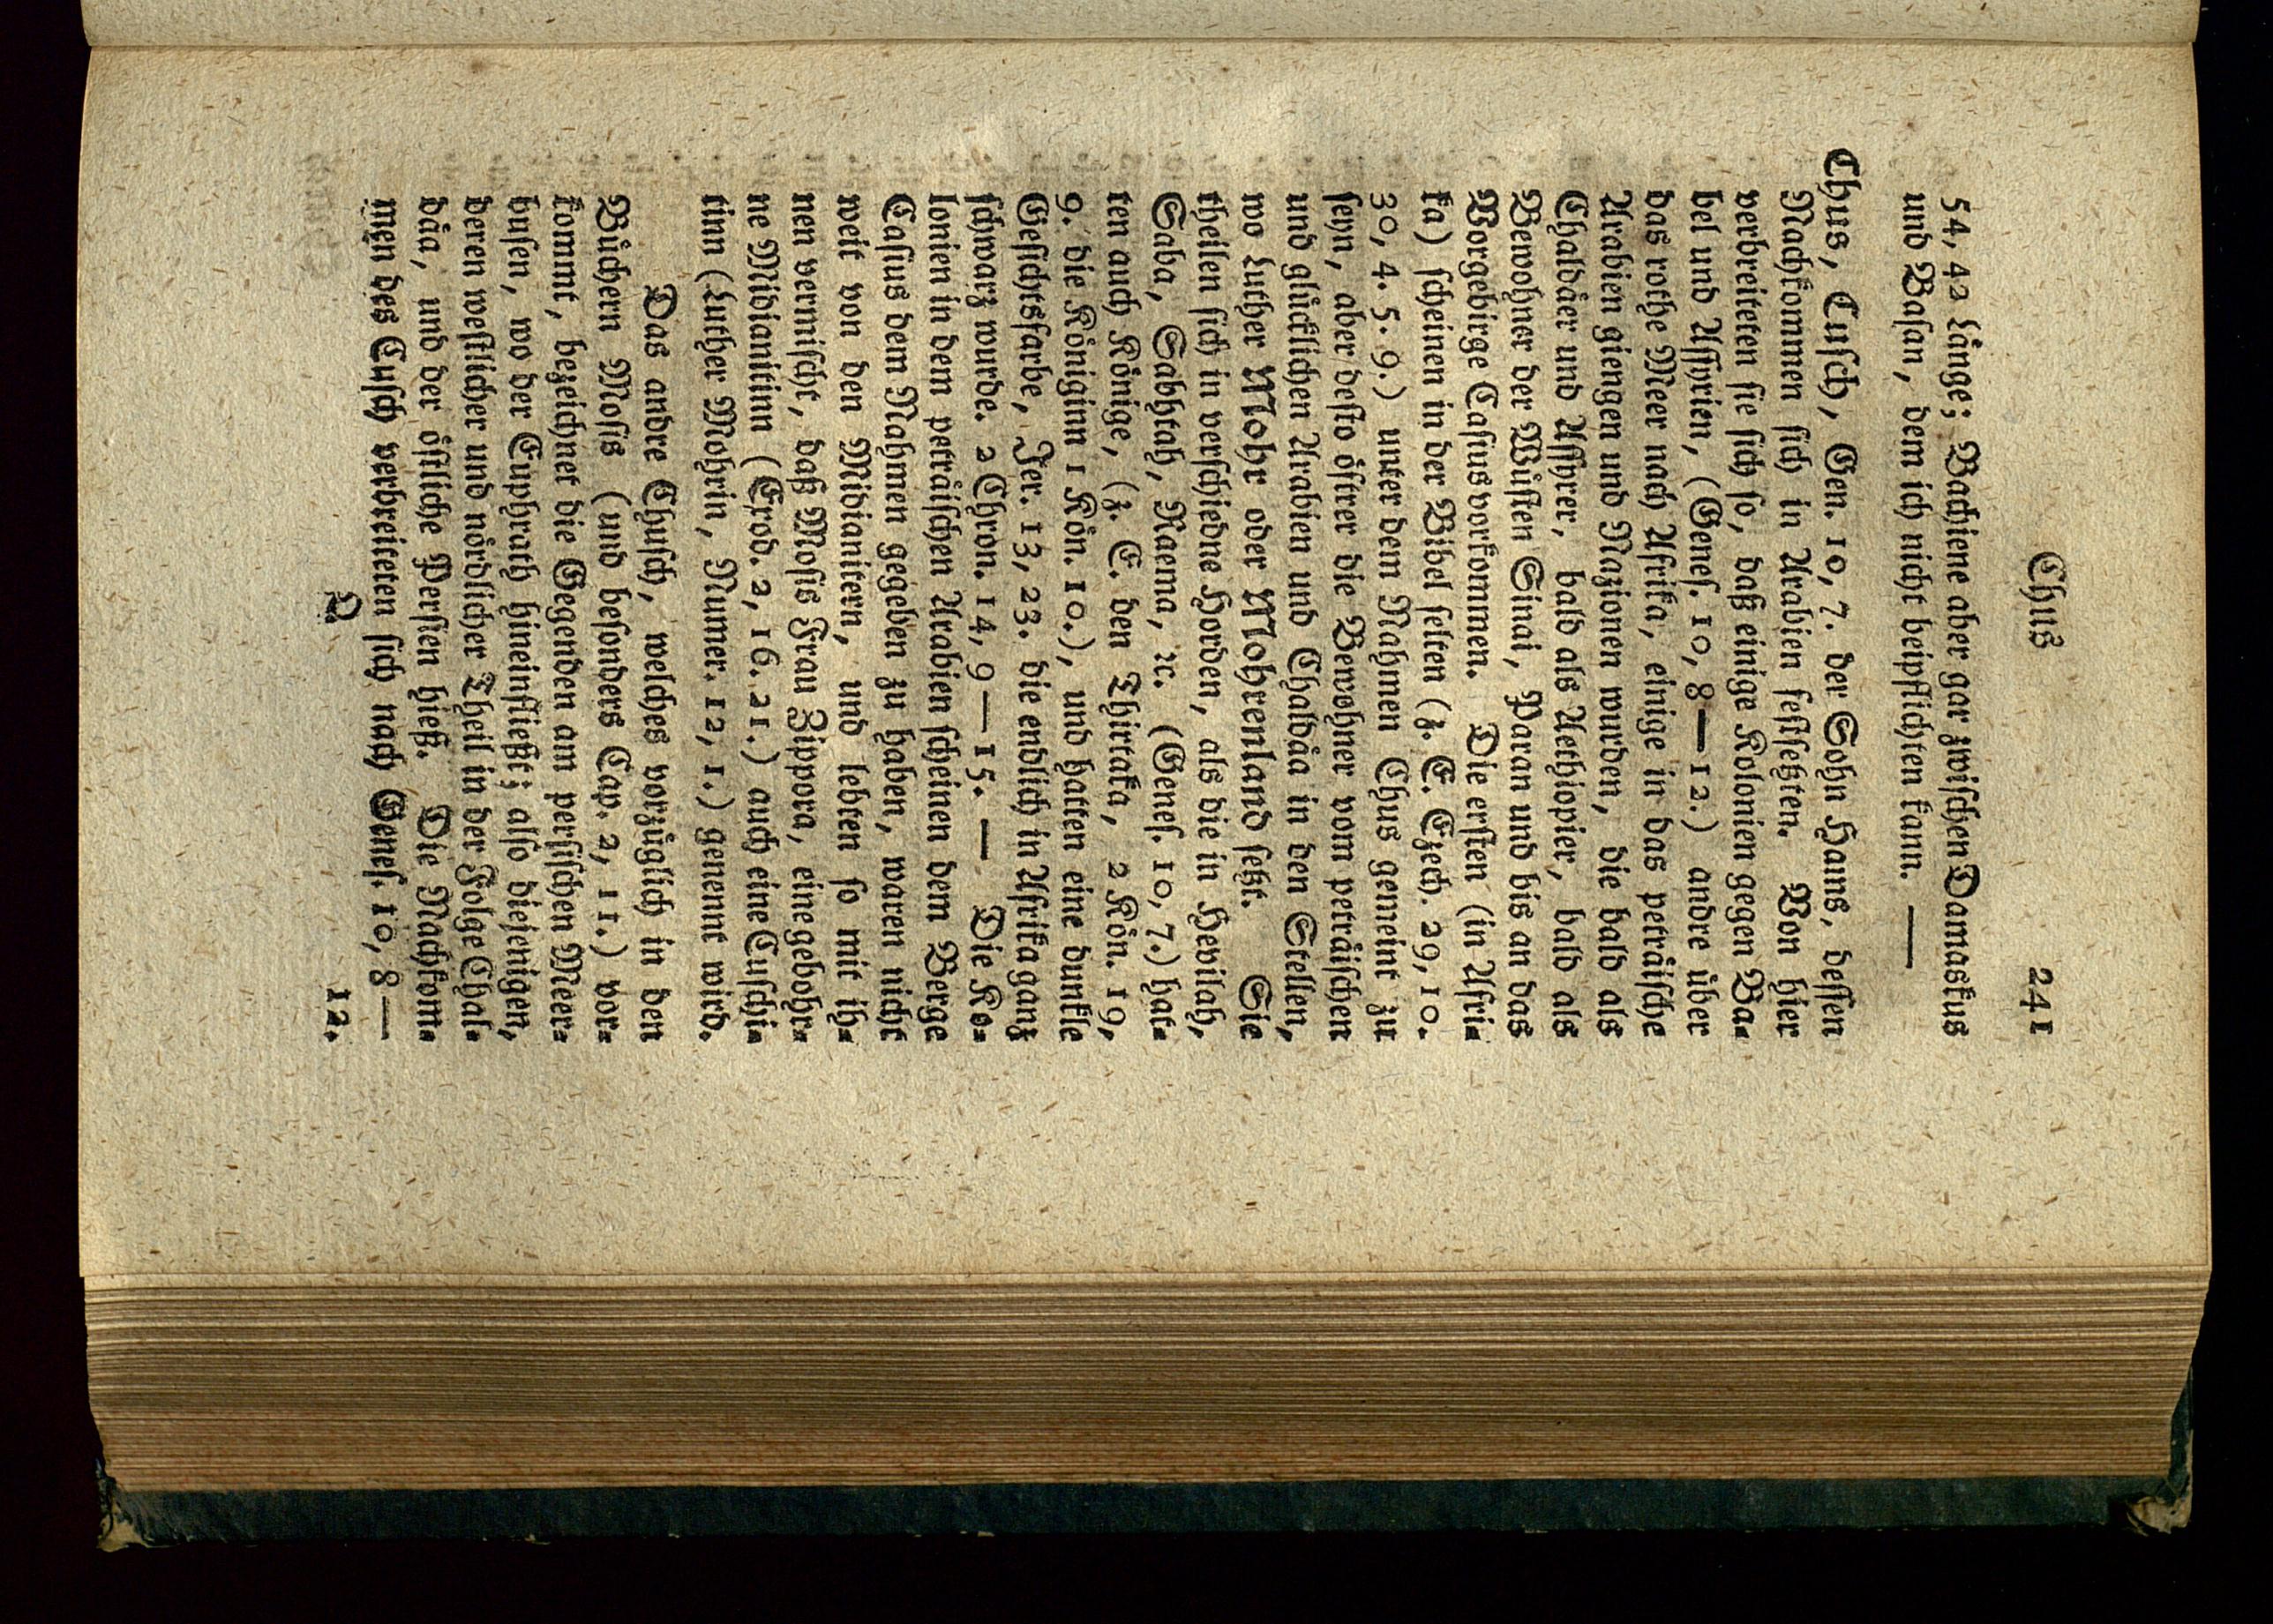 Chus 241
54, 42 Länge; Bachiene aber gar zwiſchen Damaskus
und Baſan, dem ich nicht beipflichten kann. —
Chus, Cuſch, Gen. 10, 7. der Sohn Hams, deſſen
Nachkommen ſich in Arabien feſtſetzten. Von hier
verbreiteten ſie ſich ſo, daß einige Kolonien gegen Ba-
bel und Aſſyrien, (Geneſ. 10, 8—12.) andre über
das rothe Meer nach Afrika, einige in das peträiſche
Arabien giengen und Nazionen wurden, die bald als
Chaldäer und Aſſyrer, bald als Aethiopier, bald als
Bewohner der Wüſten Sinai, Paran und bis an das
Vorgebirge Caſius vorkommen. Die erſten (in Afri-
ka) ſcheinen in der Bibel ſelten (z. E. Ezech. 29, 10.
30, 4. 5. 9.) unter dem Nahmen Chus gemeint zu
ſeyn, aber deſto öftrer die Bewohner vom peträiſchen
und glücklichen Arabien und Chaldäa in den Stellen,
wo Luther Mohr oder Mohrenland ſetzt. Sie
theilen ſich in verſchiedne Horden, als die in Hevilah,
Saba, Sabhtah, Raema, ꝛc. (Geneſ. 10, 7.) hat-
ten auch Könige, (z. E. den Thirtaka, 2 Kön. 19,
9. die Königinn 1 Kön. 10.), und hatten eine dunkle
Geſichtsfarbe, Jer. 13, 23. die endlich in Afrika ganz
ſchwarz wurde. 2 Chron. 14, 9—15. — Die Ko-
lonien in dem peträiſchen Arabien ſcheinen dem Berge
Caſius dem Nahmen gegeben zu haben, waren nicht
weit von den Midianitern, und lebten ſo mit ih-
nen vermiſcht, daß Moſis Frau Zippora, eine gebohr-
ne Midianitinn (Exod. 2, 16. 21.) auch eine Cuſchi-
tinn (Luther Mohrin, Numer. 12, 1.) genennt wird.
Das andre Chuſch, welches vorzüglich in den
Büchern Moſis (und beſonders Cap. 2, 11.) vor-
kommt, bezeichnet die Gegenden am perſiſchen Meer-
buſen, wo der Euphrath hineinfließt; alſo diejenigen,
deren weſtlicher und nördlicher Theil in der Folge Chal-
däa, und der öſtliche Perſien hieß. Die Nachkom-
men des Cuſch verbreiteten ſich nach Geneſ. 10, 8—
Q 12.